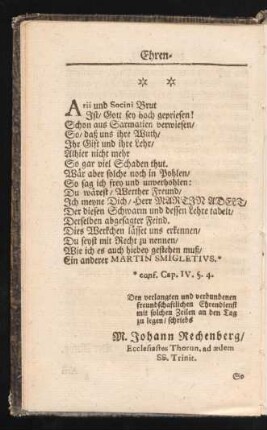 Ehren-
* *
Arii und Socini Brut
Jst/ Gott sey hoch gepriesen!
Schon aus Sarmatien verwiesen/
So/ daß uns ihr Wuth/
Jhr Gift und ihre Lehr/
Alhier nicht mehr
So gar viel Schaden thut.
Wär aber solche noch in Pohlen/
So sag ich frey und unverhohlen:
Du wärest/ Werther Freund/
Jch meyne Dich/ Herr MARTIN ADELT,
Der diesen Schwarm und dessen Lehre tadelt/
Derselben abgesagter Feind.
Dies Werkchen lässet uns erkennen/
Du seyst mit Recht zu nennen/
Wie ich es auch hiebey gestehen muß/
Ein anderer MARTIN SMIGLETIUS.*
* conf. Cap. IV. §. 4.
Den verlangten und verbundenen
freundschaftlichen Ehrendienst
mit solchen Zeilen an den Tag
zu legen/ schriebs
M. Johann Rechenberg/
Ecclesiastes Thorun. ad ædem
SS. Trinit.
So